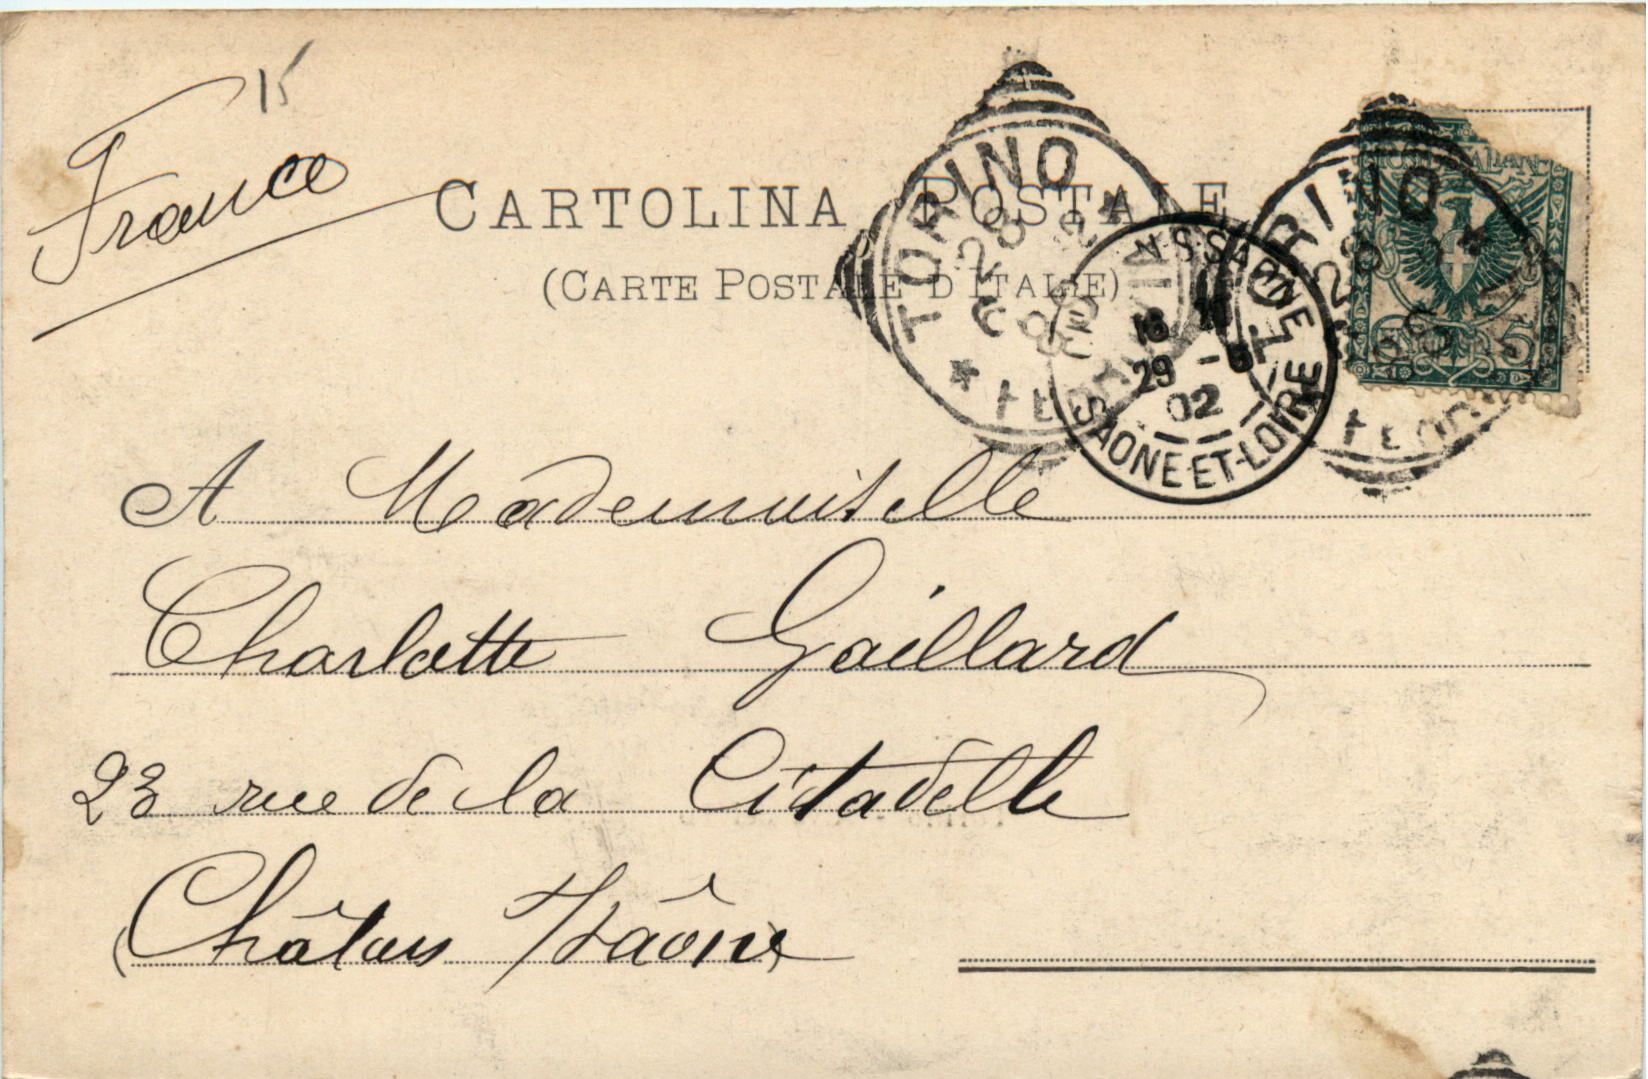 15
France
CARTOLINA POSTALE
(CARTE POSTALE D'ITALIE)
TORINO
28
* FERROVIA
N-S-SAONE
18
29 -5
02
SAONE-ET-LOIRE
TORINO
28
5
A Mademoiselle
Charlotte Gaillard
23 rue de la Citadelle
Châlons s/ Saône